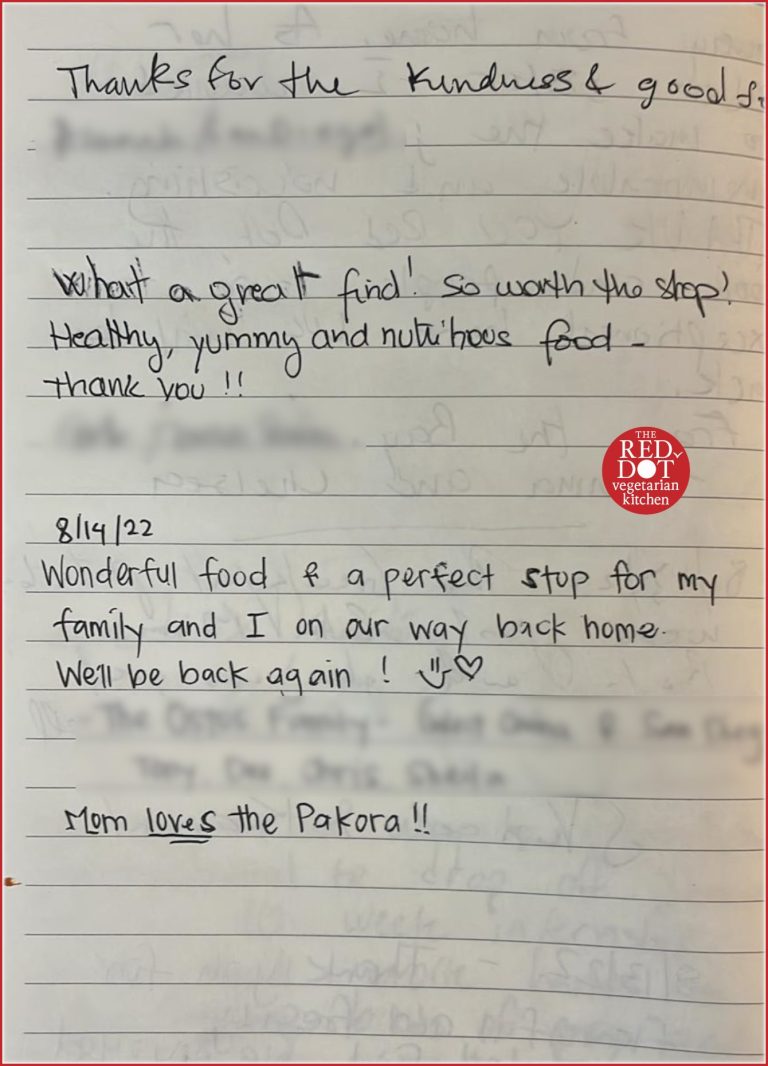 Thanks for the Kindness & good
What a great find! So worth the stop!
Healthy, yummy and nutritious food -
thank you !!
THE
RED
DOT
vegetarian
kitchen
8/14/22
Wonderful food & a perfect stop for my
family and I on our way back home.
We'll be back again !
Mom loves the Pakora!!